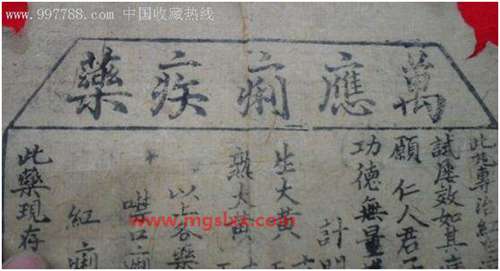 www.997788.com 中国收藏热线
萬應痢疾藥
專治紅
試屡效如其
願仁人君
功德無量
計開
生大黄
熟大黄
以上各藥
噤口痢
紅痢
此藥現存